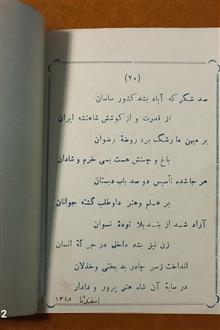 (۲۰)
صد شکر که آباد بشد کشور ساسان
از قدرت و از کوشش شاهنشه ایران
بر میهن ما رشک برد روضهٔ رضوان
باغ و چمنش هست بسی خرم و شادان
هر جا شده تأسیس دو صد باب دبستان
بر علم و هنر داوطلب گشته جوانان
آزاد شد از بند بلا تودهٔ نسوان
زن نیز بشد داخل در جرگهٔ انسان
انداخت ز سر چادر بدبختی و خذلان
در سایهٔ آن شاه هنر پرور و دادار
اسفند ۱۳۱۸
2